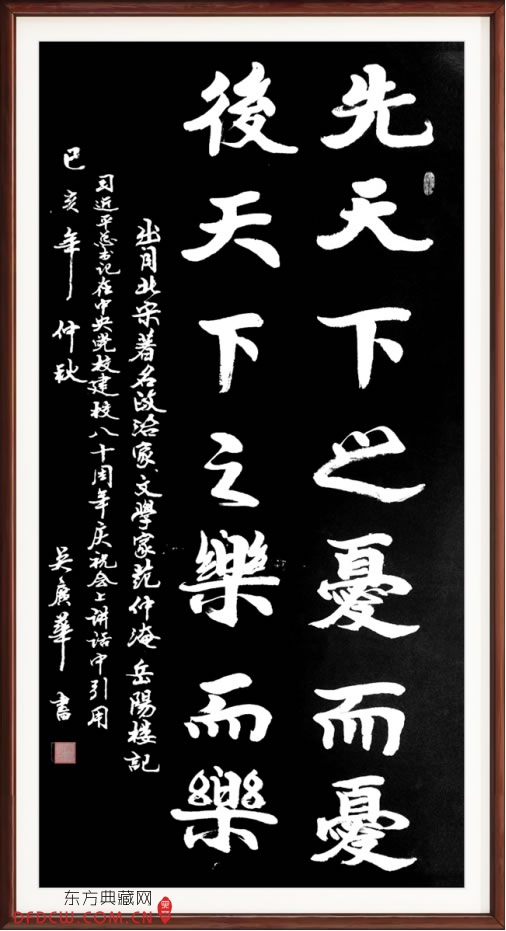 先天下之憂而憂
後天下之樂而樂
出自北宋著名政治家、文學家范仲淹岳陽楼記
习近平总书记在中央党校建校八十周年庆祝会上讲话中引用
己亥年仲秋 吴廣華書
东方典藏网
DFDCW.COM.CN